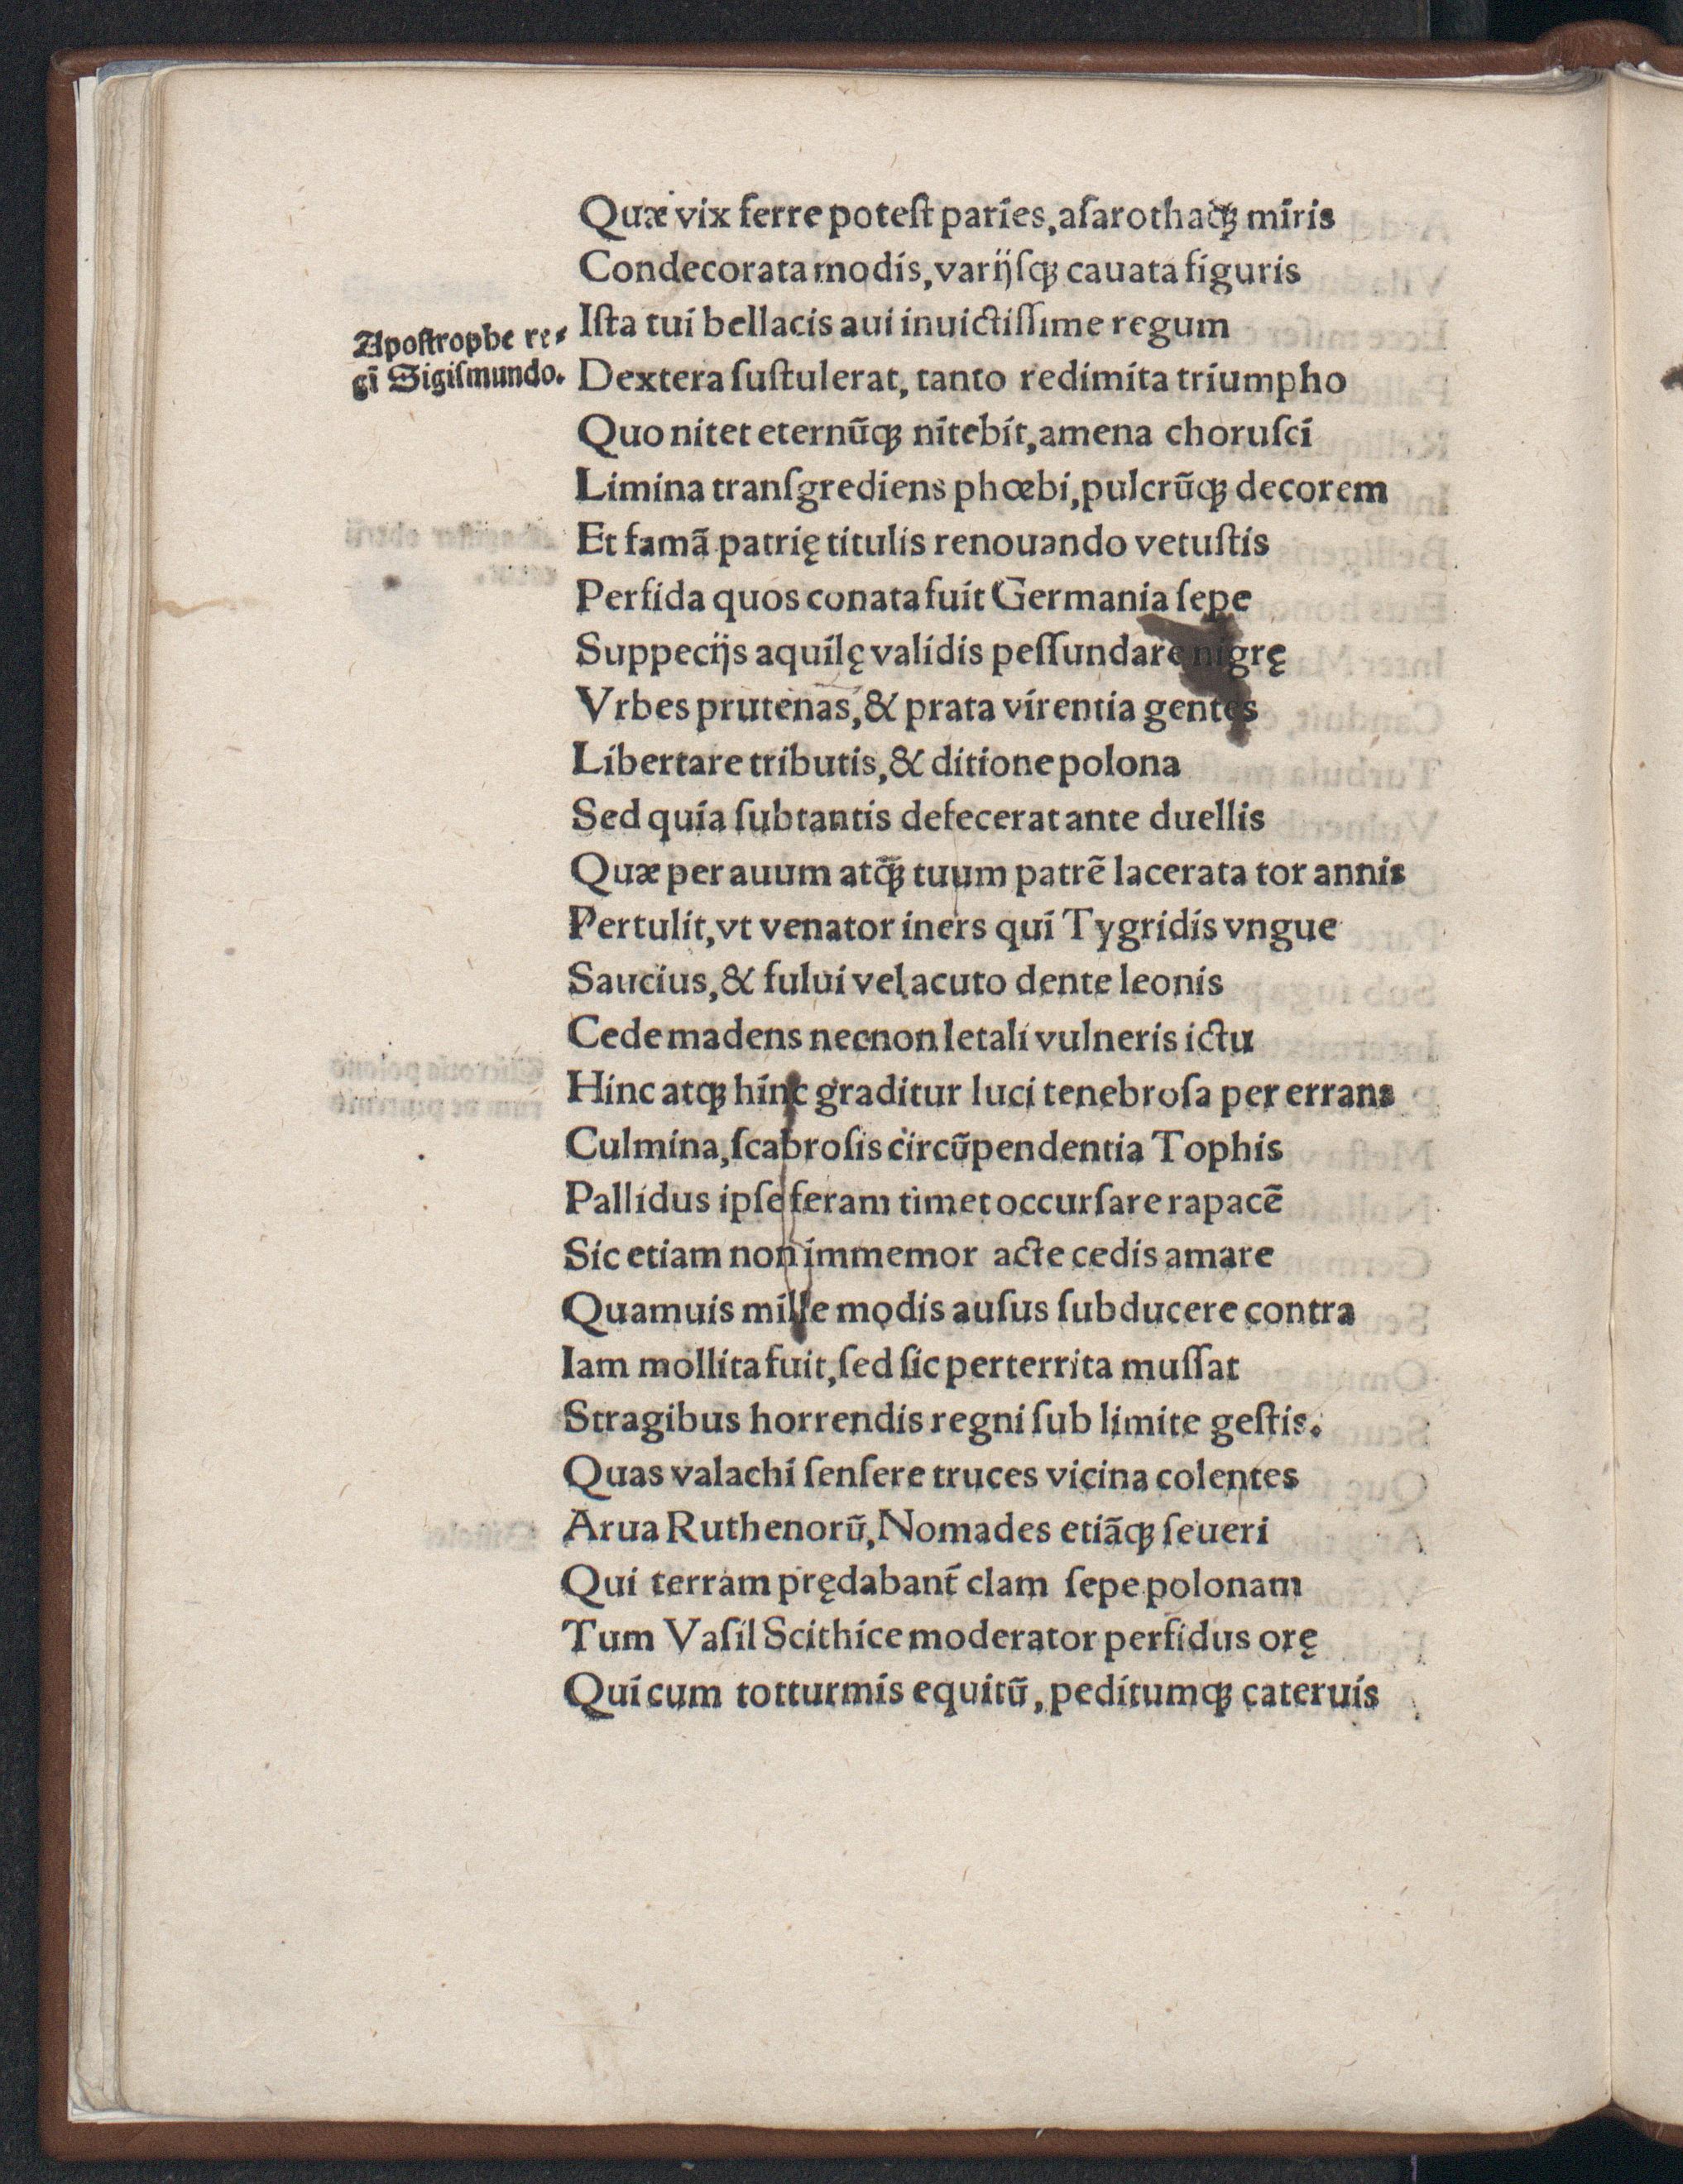 Quæ vix ferre poteſt paries, aſarothaqꝫ miris
Condecorata modis, varijſqꝫ cauata figuris
Iſta tui bellacis aui inuictiſſime regum
Apoſtrophe re⸗
gi Sigiſmundo.
Dextera ſuſtulerat, tanto redimita triumpho
Quo nitet eternũqꝫ nitebit, amena choruſci
Limina tranſgrediens phœbi, pulcrũqꝫ decorem
Et famã patrię titulis renouando vetuſtis
Perfida quos conata fuit Germania ſepe
Suppecijs aquilę validis peſſundare nigrę
Vrbes prutenas, & prata virentia gentes
Libertare tributis, & ditione polona
Sed quia ſub tantis defecerat ante duellis
Quæ per auum atqꝫ tuum patrẽ lacerata tor annis
Pertulit, vt venator iners qui Tygridis vngue
Saucius, & fului vel acuto dente leonis
Cede madens necnon letali vulneris ictu
Hinc atqꝫ hinc graditur luci tenebroſa per errans
Culmina, ſcabroſis circũpendentia Tophis
Pallidus ipſe feram timet occurſare rapacẽ
Sic etiam non immemor acte cedis amare
Quamuis mille modis auſus ſubducere contra
Iam mollita fuit, ſed ſic perterrita muſſat
Stragibus horrendis regni ſub limite geſtis.
Quas valachi ſenſere truces vicina colentes
Arua Ruthenorũ, Nomades etiãqꝫ ſeueri
Qui terram prędabant̃ clam ſepe polonam
Tum Vaſil Scithice moderator perfidus orę
Qui cum tot turmis equitũ, peditumqꝫ cateruis